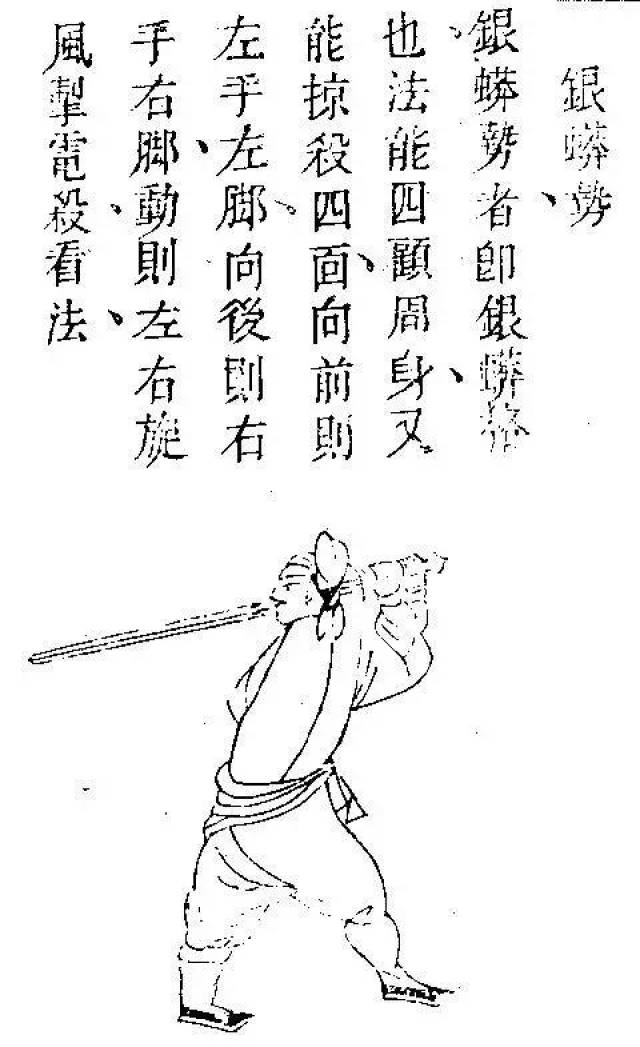 銀蟒勢
銀蟒勢者即銀蟒
也法能四顧周身又
能掠殺四面向前則
左手左脚向後則右
手右脚動則左右旋
風掣電殺看法